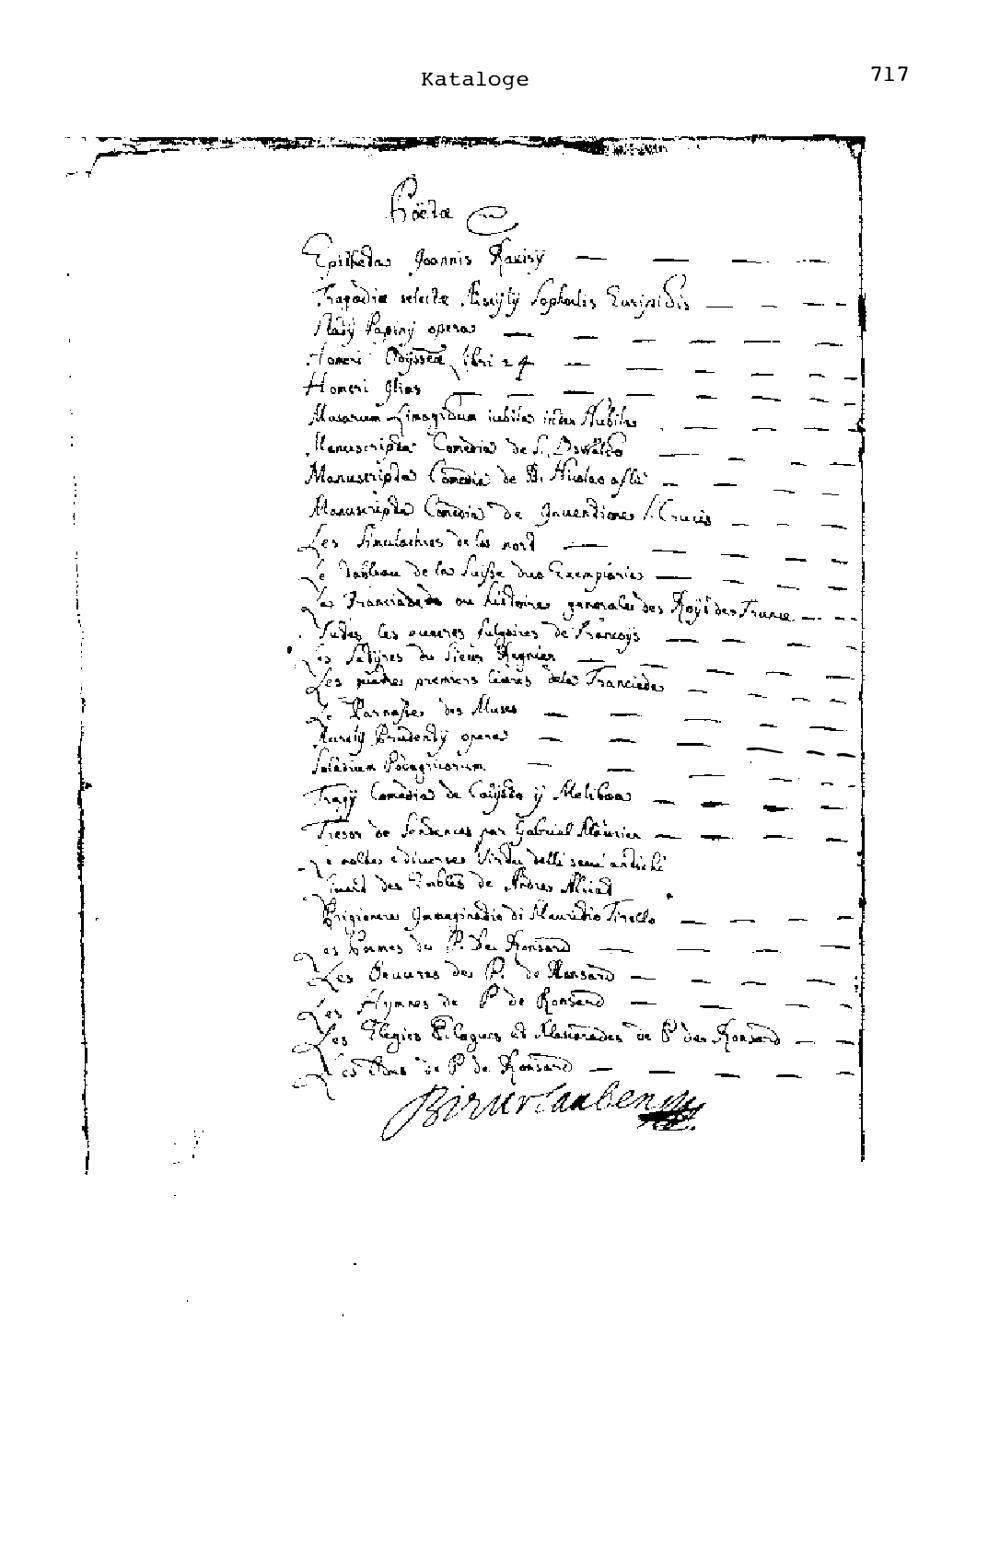 Kataloge
717
Poëtæ
Epitheta Joannis Ravisÿ
Tragædiæ selectæ Æscÿlÿ Sophoclis Euripidis
Papinÿ opera
Homeri Odÿsseæ libri 24
Homeri Ilias
Musarum
Manuscripta Comedia de S. Oswaldo
Manuscripta Comedia de D. Nicolao
Manuscripta Comedia de Inventione S. Crucis
Les Simulachres de la mort
Le Tableau de la Suisse duo Exemplaria
La Franciade ou histoire generale des Roÿs de France
les œuvres de Francoÿs
Les Satÿres du Sieur Regnier
Les quatre premiers livres de la Franciade
Le Parnasse des Muses
Aurelÿ Prudentÿ opera
Solatium Podagricorum
Tragÿ Comedia de Calÿsto ÿ Melibea
Tresor de Sentences par Gabriel Meurier
e diverse delli antichi
des de Andre Alciat
di Mauritio
Les Poemes de P. de Ronsard
Les Oeuvres de P. de Ronsard
Les Hymnes de P de Ronsard
Les Elegies Eclogues et Mascarades de P de Ronsard
Les Odes de P de Ronsard